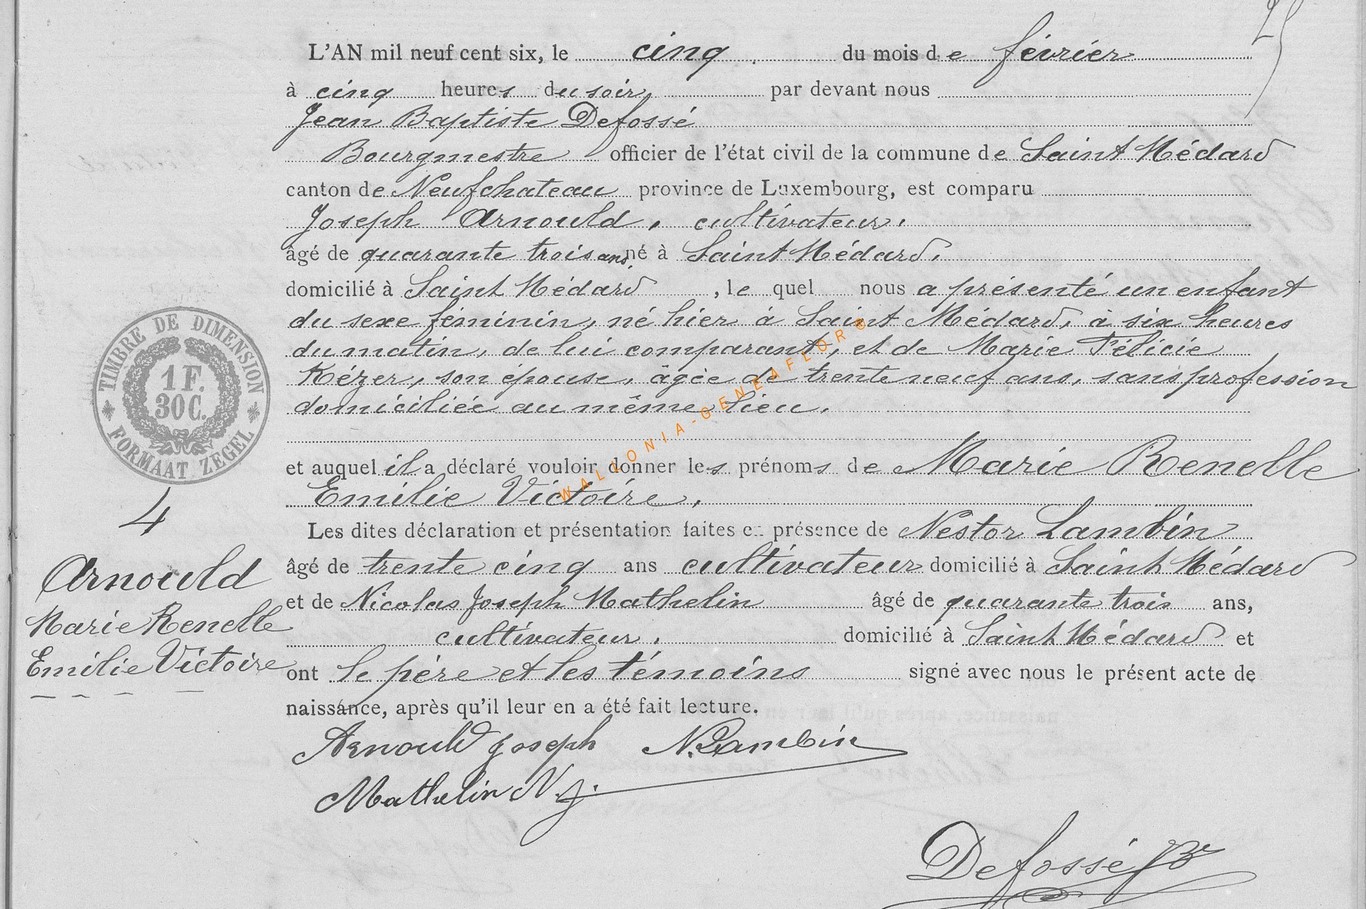 25
L'AN mil neuf cent six, le cinq du mois de février
à cinq heures du soir, par devant nous
Jean Baptiste Defossé
Bourgmestre officier de l'état civil de la commune de Saint Médard
canton de Neufchateau province de Luxembourg, est comparu
Joseph Arnould, cultivateur,
âgé de quarante trois ans, né à Saint Médard,
domicilié à Saint Médard, le quel nous a présenté un enfant
du sexe féminin, né hier à Saint Médard, à six heures
du matin, de lui comparant, et de Marie Félicie
Kézer, son épouse, âgée de trente neuf ans, sans profession
domiciliée au même lieu.
et auquel il a déclaré vouloir donner les prénoms de Marie Renelle
Emilie Victoire.
Les dites déclaration et présentation faites en présence de Nestor Lambin
âgé de trente cinq ans cultivateur domicilié à Saint Médard
et de Nicolas Joseph Mathelin âgé de quarante trois ans,
cultivateur, domicilié à Saint Médard et
ont le père et les témoins signé avec nous le présent acte de
naissance, après qu'il leur en a été fait lecture.
Arnould Joseph N. Lambin
Mathelin N. J.
Defossé JB
TIMBRE DE DIMENSION
1 F.
30 C.
FORMAAT ZEGEL
4
Arnould
Marie Renelle
Emilie Victoire
WALLONIA-GENEAFLORE